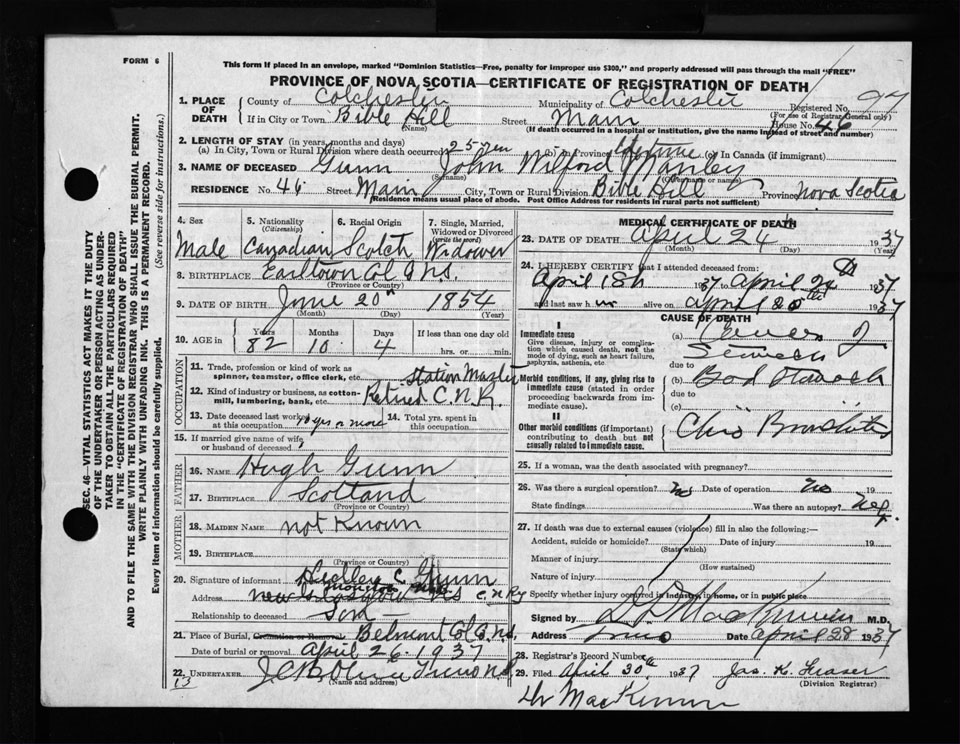 FORM 6
This form if placed in an envelope, marked "Dominion Statistics—Free, penalty for improper use $300," and properly addressed will pass through the mail "FREE"
PROVINCE OF NOVA SCOTIA—CERTIFICATE OF REGISTRATION OF DEATH
1. PLACE OF DEATH County of Colchester Municipality of Colchester Registered No. 97
(For use of Registrar General only)
If in City or Town Bible Hill Street Main House No. 46
(Name) (If death occurred in a hospital or institution, give the name instead of street and number)
2. LENGTH OF STAY (in years, months and days)
(a) In City, Town or Rural Division where death occurred 25 yrs (b) in Province Lifetime (c) In Canada (if immigrant)
3. NAME OF DECEASED Gunn John Wilford
(Surname) (Given name or names)
RESIDENCE No. 46 Street Main City, Town or Rural Division Bible Hill Province Nova Scotia
(Residence means usual place of abode. Post Office Address for residents in rural parts not sufficient)
4. Sex 5. Nationality (Citizenship) 6. Racial Origin 7. Single, Married, Widowed or Divorced (write the word)
Male Canadian Scotch Widower
8. BIRTHPLACE Earltown Col Co N.S.
(Province or Country)
9. DATE OF BIRTH June 20th 1854
(Month) (Day) (Year)
10. AGE in Years Months Days If less than one day old
82 10 4 hrs. or min.
OCCUPATION
11. Trade, profession or kind of work as spinner, teamster, office clerk, etc. Station Master
12. Kind of industry or business, as cotton-mill, lumbering, bank, etc. Retired C.N.R.
13. Date deceased last worked at this occupation 10 yrs or more 14. Total yrs. spent in this occupation
15. If married give name of wife or husband of deceased
FATHER
16. NAME Hugh Gunn
17. BIRTHPLACE Scotland
(Province or Country)
MOTHER
18. MAIDEN NAME not Known
19. BIRTHPLACE
(Province or Country)
20. Signature of informant Hedley C Gunn
Address New Glasgow N.S C.N.Ry
Relationship to deceased Son
21. Place of Burial, Cremation or Removal Belmont Col Co. N.S.
Date of burial or removal April 26 1937
22. UNDERTAKER Truro N.S.
(Name and address)
13
MEDICAL CERTIFICATE OF DEATH
23. DATE OF DEATH April 24 1937
(Month) (Day) (Year)
24. I HEREBY CERTIFY that I attended deceased from:
April 18th 1937 to April 24 1937
and last saw him alive on April 20th 1937
CAUSE OF DEATH
I
Immediate cause
Give disease, injury or complication which caused death, not the mode of dying, such as heart failure, asphyxia, asthenia, etc
(a) of
due to
Morbid conditions, if any, giving rise to immediate cause (stated in order proceeding backwards from immediate cause).
(b) Bad
due to
(c)
II
Other morbid conditions (if important) contributing to death but not causally related to immediate cause.
Bronchitis
25. If a woman, was the death associated with pregnancy?
26. Was there a surgical operation? No Date of operation No 19
State findings Was there an autopsy? Neg.
27. If death was due to external causes (violence) fill in also the following:—
Accident, suicide or homicide? Date of injury 19
(State which)
Manner of injury
(How sustained)
Nature of injury
Specify whether injury occurred in industry, in home, or in public place
Signed by MacKinnon M.D.
Address Truro Date April 28 1937
28. Registrar's Record Number
29. Filed April 30th 1937 Jas. K. Fraser
(Division Registrar)
Dr MacKinnon
SEC. 46—VITAL STATISTICS ACT MAKES IT THE DUTY
OF THE UNDERTAKER OR PERSON ACTING AS UNDER-
TAKER TO OBTAIN ALL THE PARTICULARS REQUIRED
IN THE "CERTIFICATE OF REGISTRATION OF DEATH"
AND TO FILE THE SAME WITH THE DIVISION REGISTRAR WHO SHALL ISSUE THE BURIAL PERMIT.
WRITE PLAINLY WITH UNFADING INK. THIS IS A PERMANENT RECORD.
Every item of information should be carefully supplied. (See reverse side for instructions.)